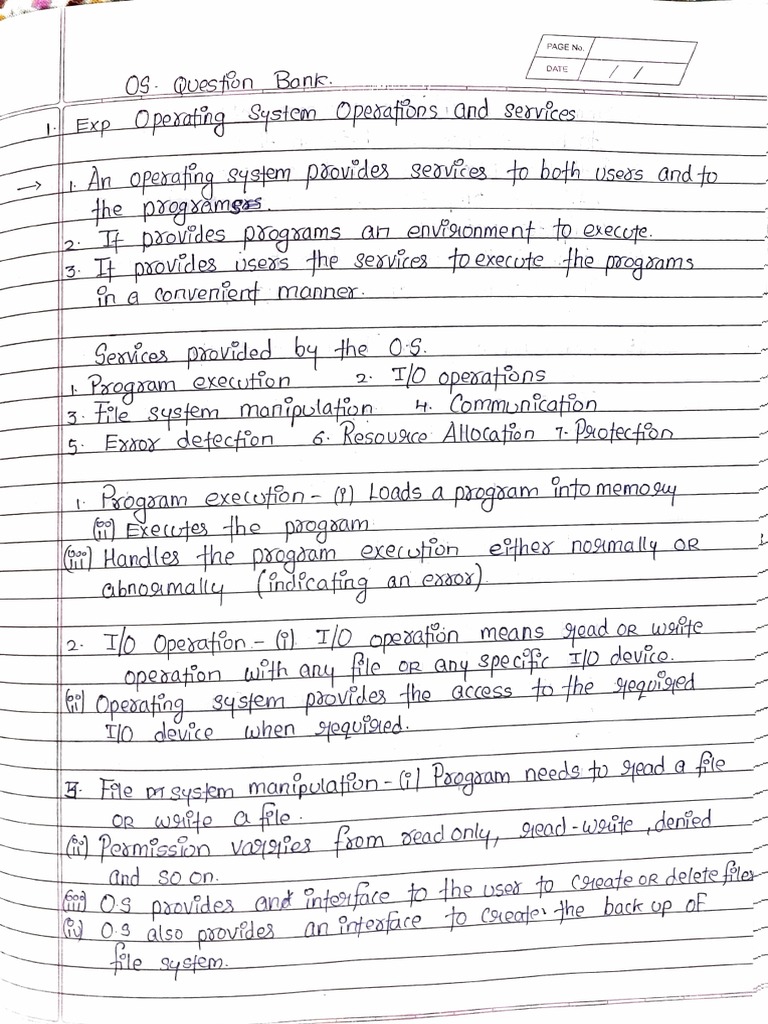 PAGE No.
DATE / /
OS. Question Bank.
1. Exp Operating System Operations and services
→ 1. An operating system provides services to both users and to
the programs.
2. It provides programs an environment to execute.
3. It provides users the services to execute the programs
in a convenient manner.
Services provided by the O.S.
1. Program execution 2. I/O operations
3. File system manipulation 4. Communication
5. Error detection 6. Resource Allocation 7. Protection
1. Program execution - (i) Loads a program into memory
(ii) Executes the program
(iii) Handles the program execution either normally OR
abnormally (indicating an error)
2. I/O Operation - (i) I/O operation means read OR write
operation with any file OR any specific I/O device.
(ii) Operating system provides the access to the required
I/O device when required.
3. File system manipulation - (i) Program needs to read a file
OR write a file.
(ii) Permission varries from read only, read-write, denied
and so on.
(iii) O.S provides and interface to the user to create OR delete files
(iv) O.S also provides an interface to create the back up of
file system.